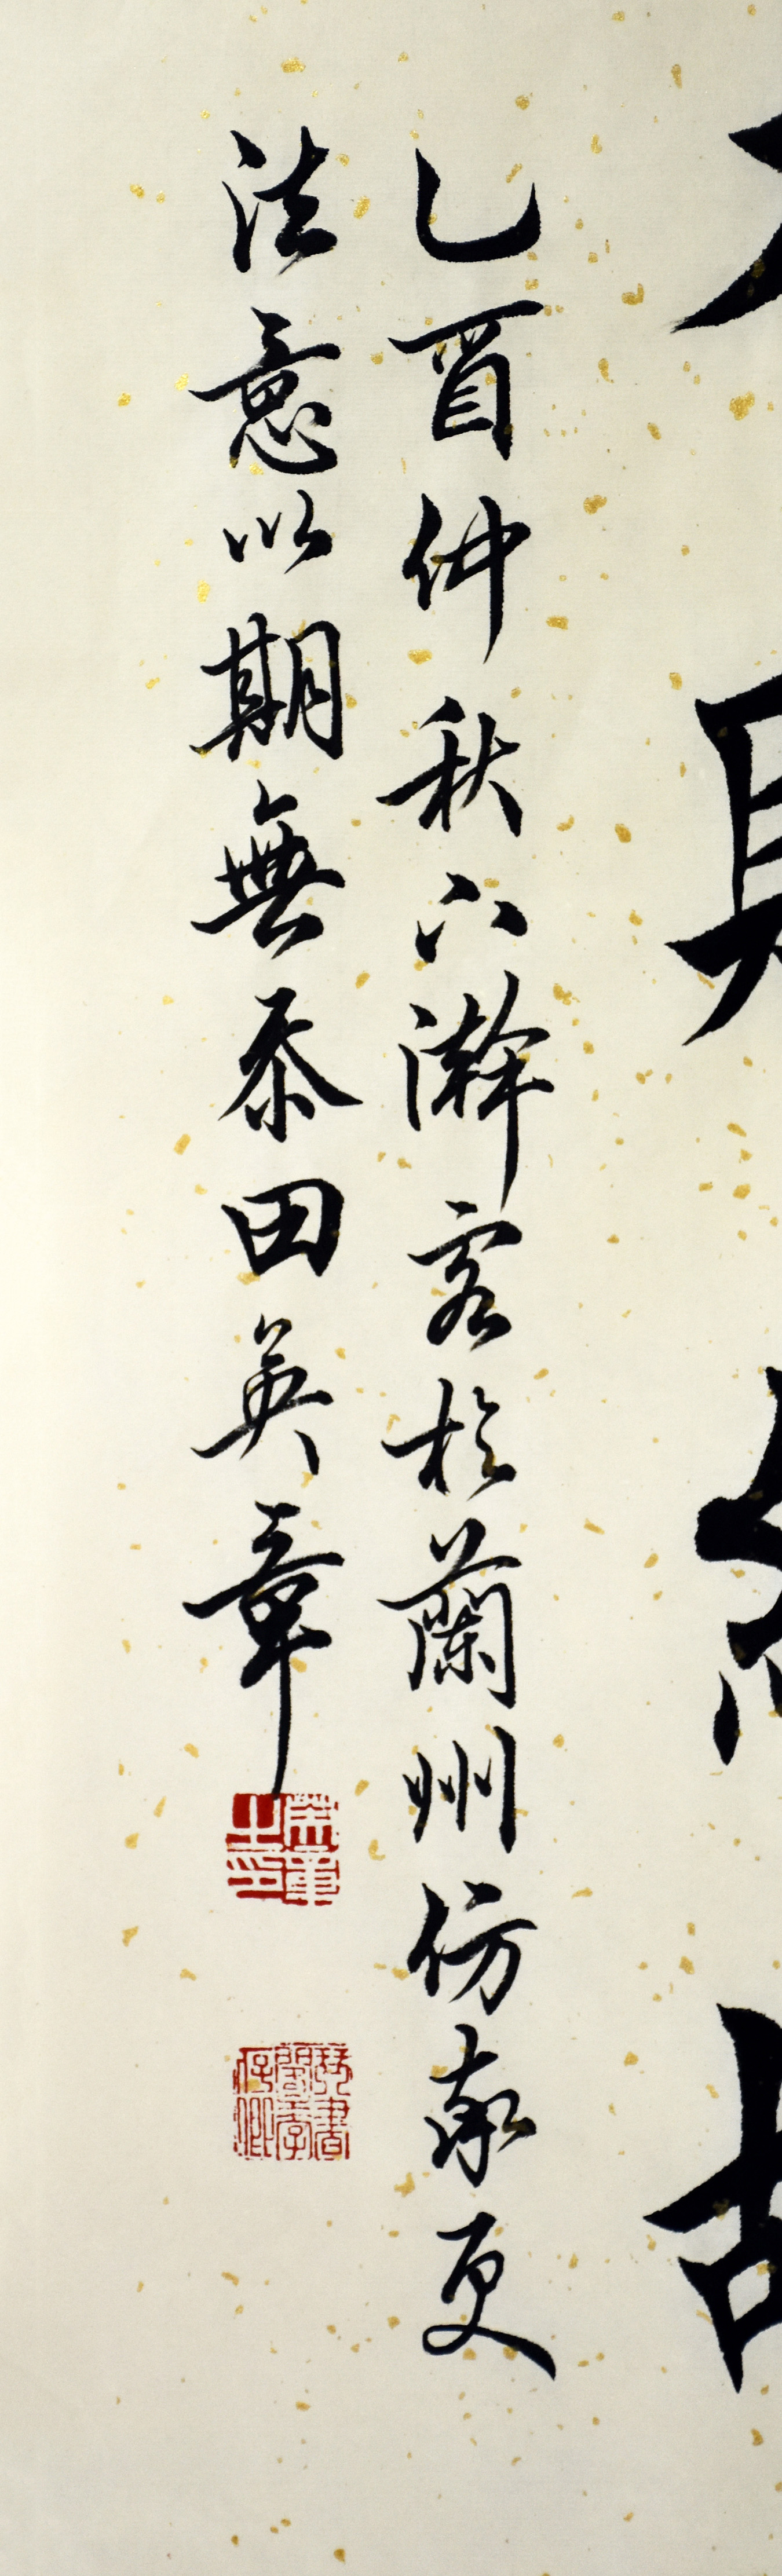 乙酉仲秋下澣客於蘭州仿率更
法意以期無忝田英章